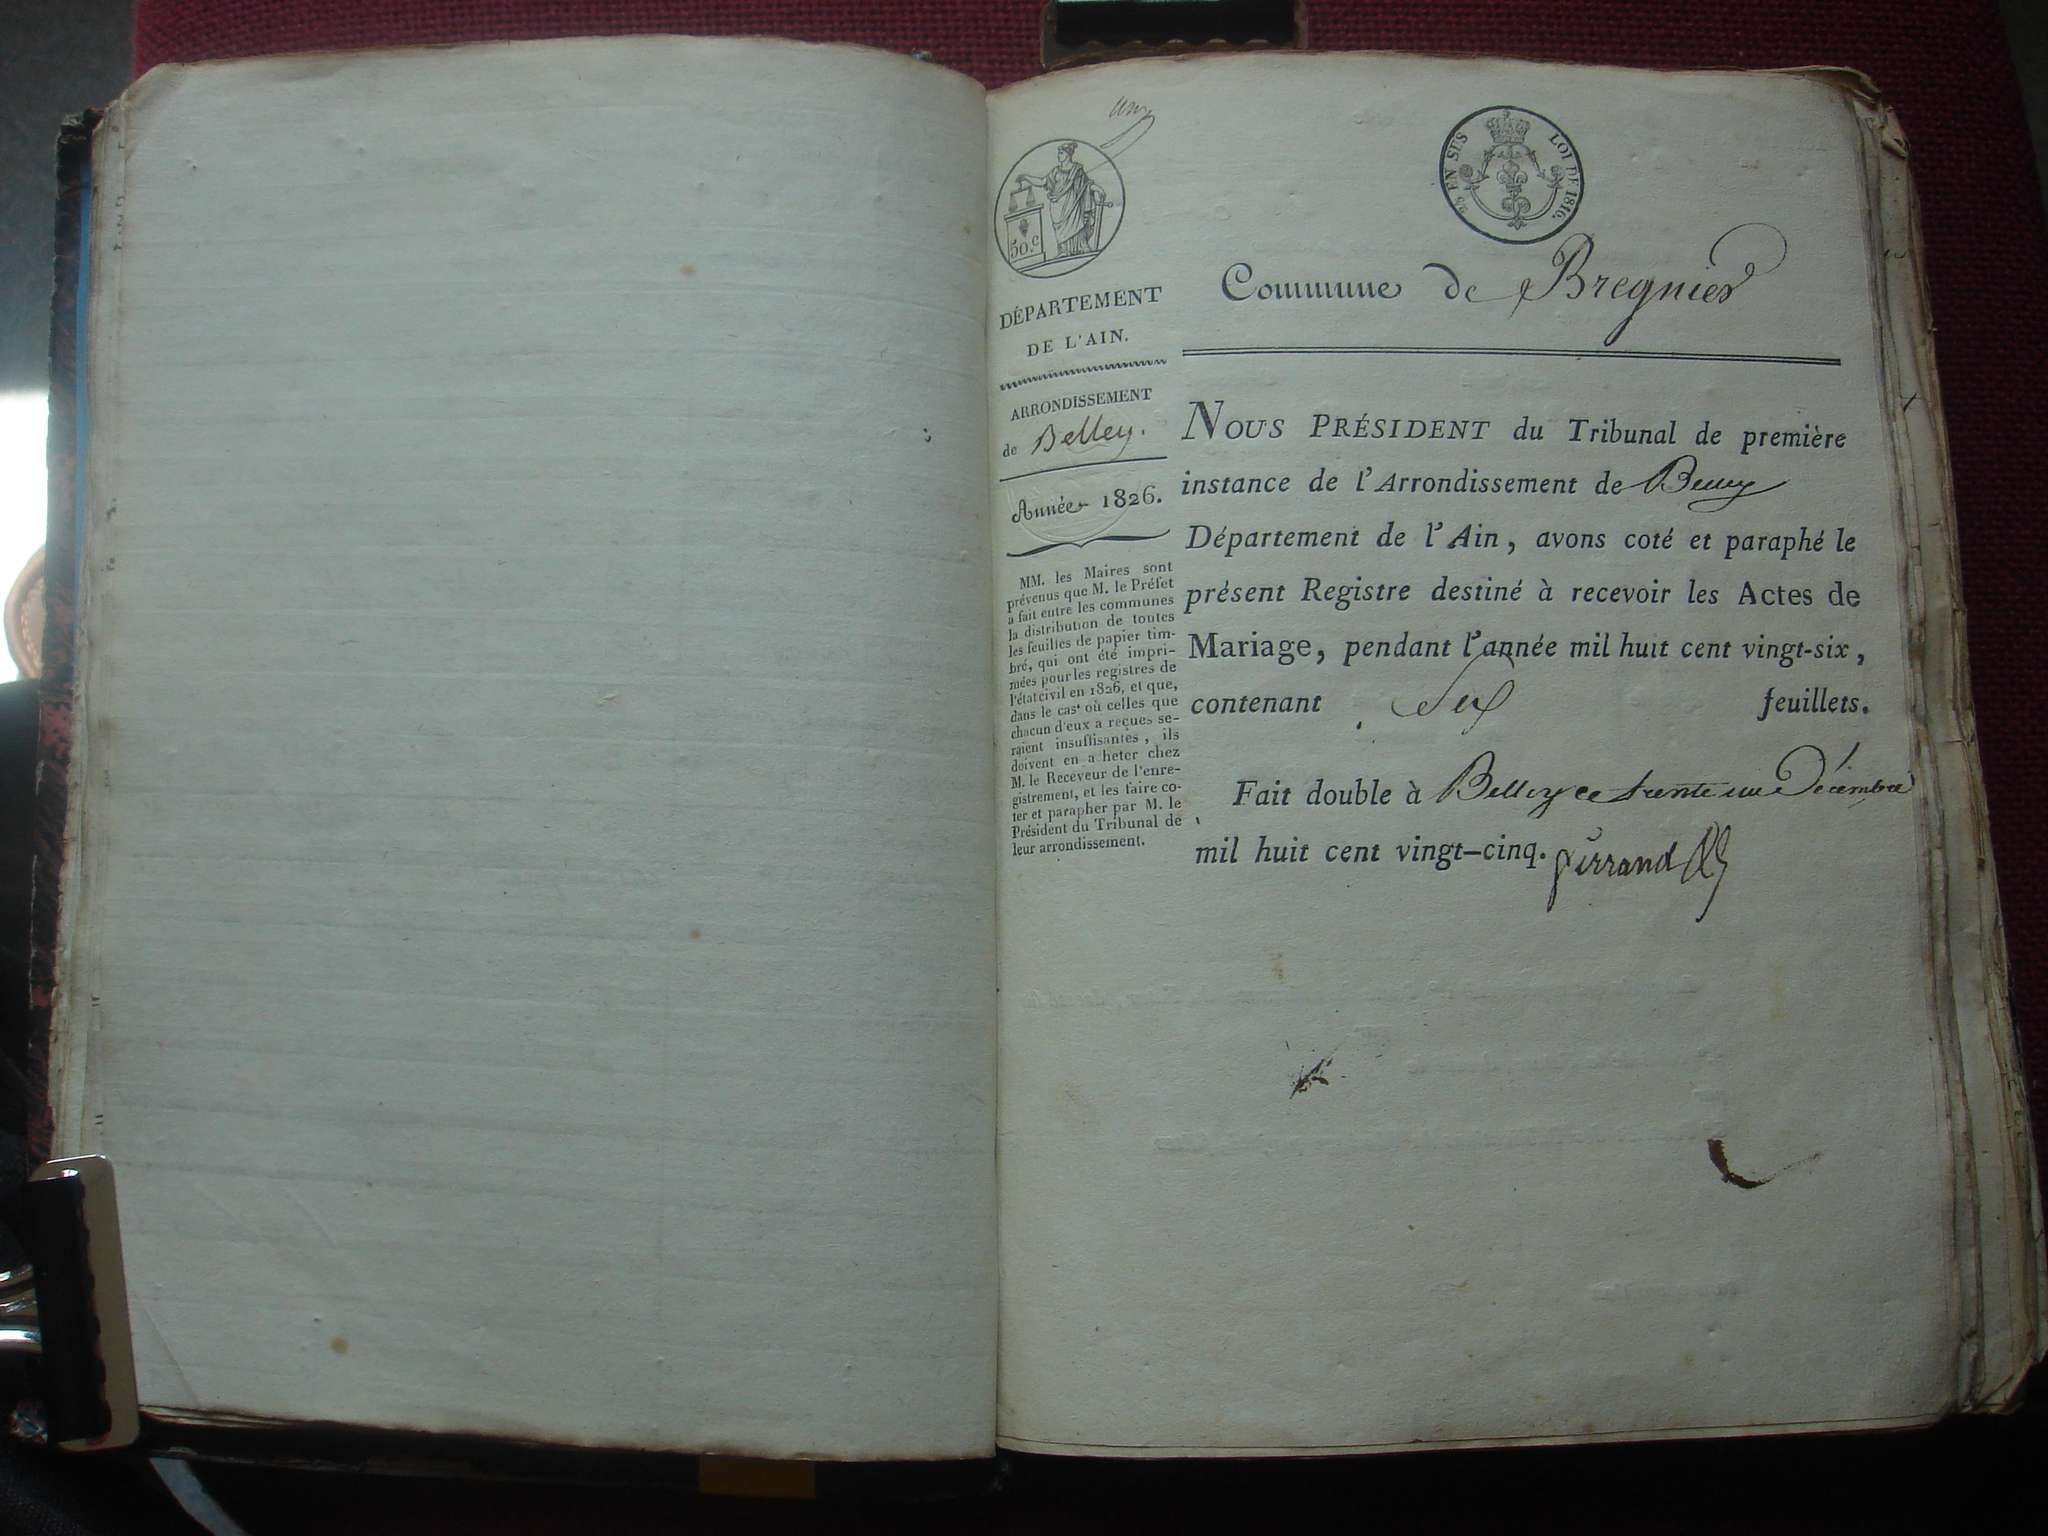 50.c
25 EN SUS LOI DE 1816.
Commune de Bregnier
DÉPARTEMENT
DE L'AIN.
ARRONDISSEMENT
de Belley.
Année 1826.
MM. les Maires sont
prévenus que M. le Préfet
a fait entre les communes
la distribution de toutes
les feuilles de papier tim-
bré, qui ont été impri-
mées pour les registres de
l'état civil en 1826, et que,
dans le cas où celles que
chacun d'eux a reçues se-
raient insuffisantes, ils
doivent en a heter chez
M. le Receveur de l'enre-
gistrement, et les faire co-
ter et parapher par M. le
Président du Tribunal de
leur arrondissement.
NOUS PRÉSIDENT du Tribunal de première
instance de l'Arrondissement de Belley
Département de l'Ain, avons coté et paraphé le
présent Registre destiné à recevoir les Actes de
Mariage, pendant l'année mil huit cent vingt-six,
contenant six feuillets.
Fait double à Belley ce trente un Décembre
mil huit cent vingt-cinq.